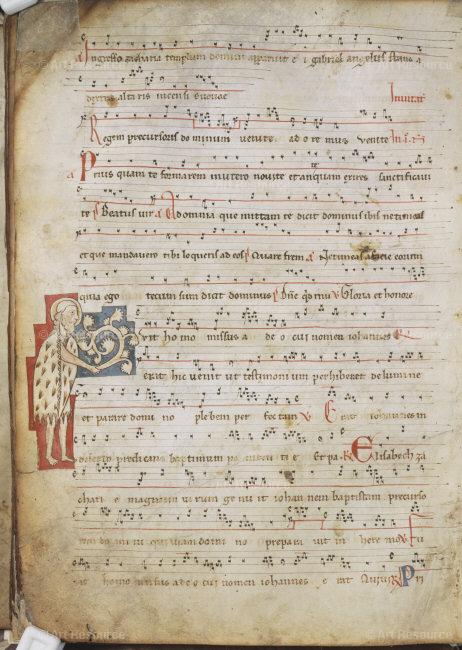 Ingresso zacharia templum domini apparuit e i gabriel angelus stans a
dextris altaris incensi evovae Invitat
Regem precursoris dominum venite ad o re mus venite
a Prius quam te formarem in utero novi te et antequam exires sanctificavi
te Beatus vir a Ad omnia que mittam te dicit dominus ibis ne timeas
et que mandavero tibi loqueris ad eos Quare frem a Ne timeas a facie eorum
quia ego tecum sum dicit dominus Dne qd Gloria et honore
Fuit homo missus a de o cui nomen iohannes
erat hic venit ut testimonium perhiberet de lumine
et parare domi no plebem per fectam V Erat iohannes in
deserto predicans baptismum peniten ti e Et pa R Elisabeth za
chari e magnum virum ge nu it iohan nem baptistam precurso
rem domi ni qui viam domi no prepara vit in here mo V Fu
it homo missus a de o cui nomen iohannes e rat Qui R Pri
© Art Resource
© Art Resource
© Art Resource